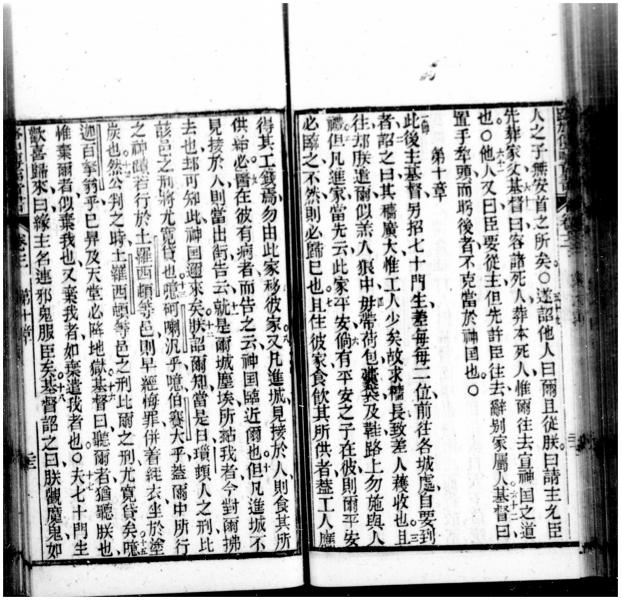 人之子無安首之所矣○遂詔他人曰爾且從朕曰請主允臣
先葬家父基督曰容諸死人葬本死人惟爾往去宣神国之道
也○他人又曰臣要從主但先許臣往去辭别家屬人基督曰
置手犂頭而眄後者不克當於神国也○
第十章
此後主基督另招七十門生差每每二位前往各城處自要到
者詔之曰其穡廣大惟工人少矣故求穡長致差人穫收也且
往却朕遣爾似羔人狼中毋帶荷包囊袋及鞋路上勿施與人
禮但凡進家當先云此家平安倘有平安之子在彼則爾平安
必臨之不然則必歸己也且住彼家食飲其所供者蓋工人應
得其工錢焉勿由此家移彼家又凡進城見接於人則食其所
供給必醫在彼有病者而告之云神国臨近爾也但凡進城不
見接於人則當出街告云就是爾城塵埃所跕我者今對爾拂
去也却可知此神国邇來矣朕詔爾知當是日瑣頭人之刑比
該邑之刑將尤寬貸也噫 喇汛乎噫伯賽大乎蓋爾中所行
之神蹟若行於土羅西頓等邑則早經悔罪併着絰衣坐於塗
炭也然公判之時土羅西頓等邑之刑比爾之刑尤寬貸矣噫
迦百拿翁乎已昇及天堂必 地獄基督曰聽爾者猶聽朕也
惟棄爾者似棄我也又棄我者如棄遣我者也○夫七十門生
歡喜歸來曰緣主名連邪鬼服臣矣基督詔之曰朕覩魔鬼如